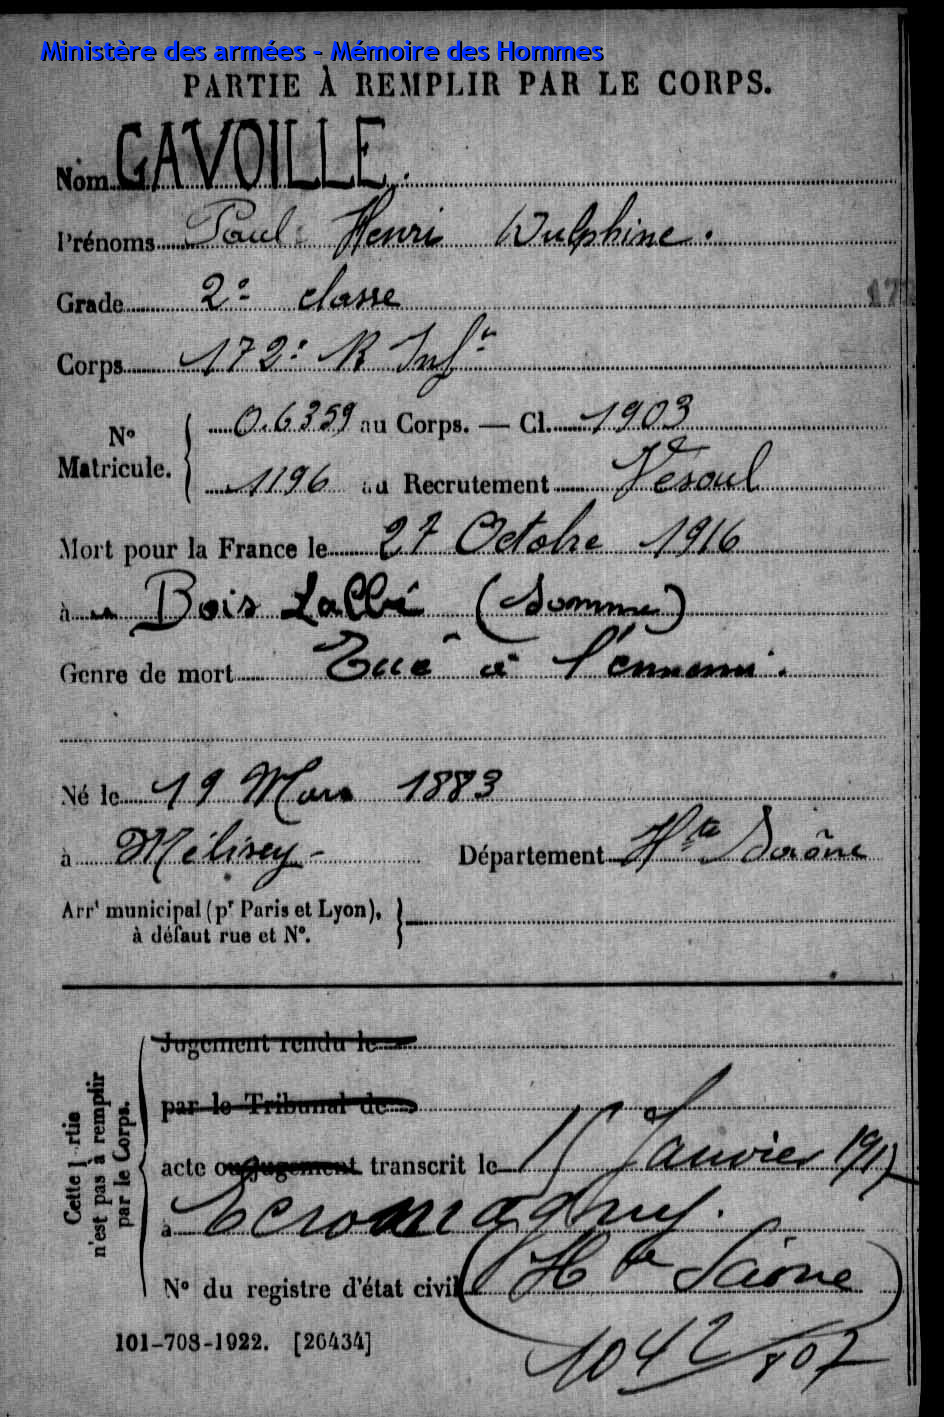 Ministère des armées - Mémoire des Hommes
PARTIE À REMPLIR PAR LE CORPS.
Nom GAVOILLE.
Prénoms Paul Henri Dulphine.
Grade 2e classe
17
Corps 172e R Infie
N° Matricule. { 0.6359 au Corps. — Cl. 1903
1196 au Recrutement Vesoul
Mort pour la France le 27 Octobre 1916
à Bois Labbé (Somme)
Genre de mort Tué à l'ennemi.
Né le 19 Mars 1883
à Mélisey - Département Hte Saône
Arrt municipal (pr Paris et Lyon), à défaut rue et N°. }
Cette partie n'est pas à remplir par le Corps.
Jugement rendu le
par le Tribunal de
acte ou jugement transcrit le 15 Janvier 1917
à Ecromagny.
(Hte Saône)
N° du registre d'état civil
101-708-1922. [26434]
1042/807